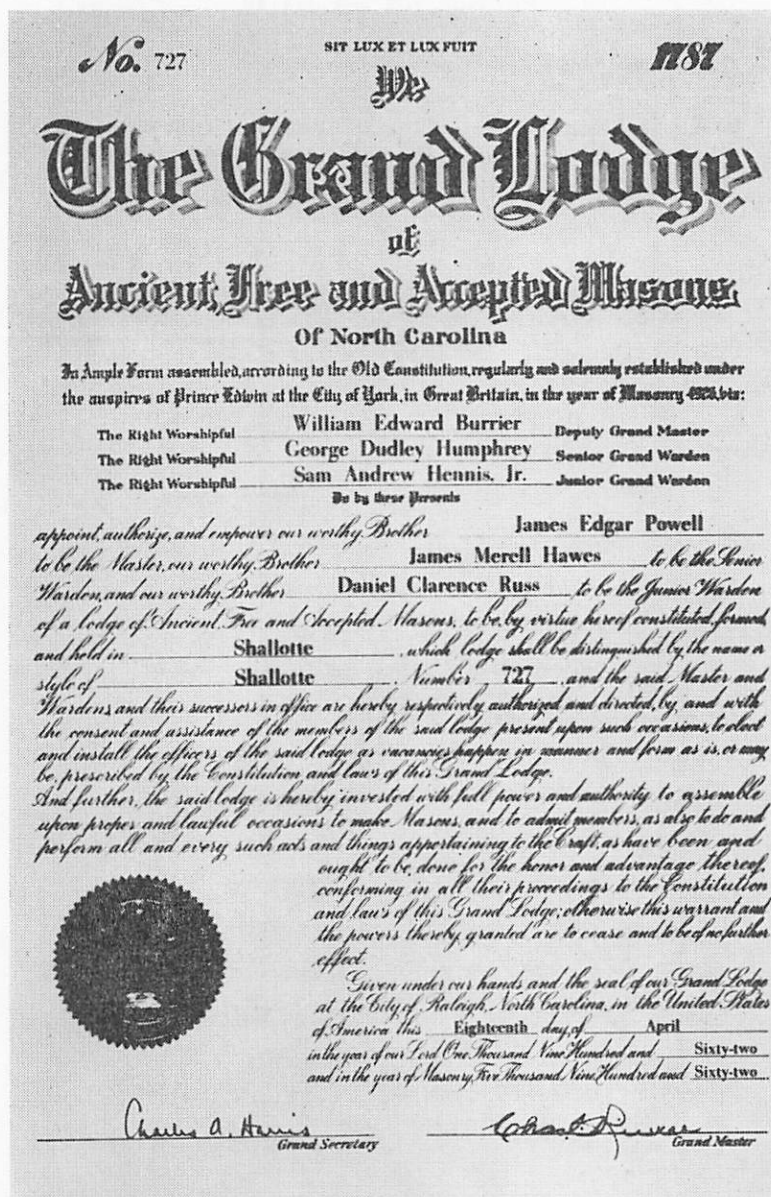 No. 727
SIT LUX ET LUX FUIT
1787
We
The Grand Lodge
of
Ancient, Free and Accepted Masons
Of North Carolina
In Ample Form assembled, according to the Old Constitution, regularly and solemnly established under
the auspices of Prince Edwin at the City of York, in Great Britain, in the year of Masonry 4926, viz:
The Right Worshipful William Edward Burrier Deputy Grand Master
The Right Worshipful George Dudley Humphrey Senior Grand Warden
The Right Worshipful Sam Andrew Hennis, Jr. Junior Grand Warden
Do by these Presents
appoint, authorize, and empower our worthy Brother James Edgar Powell
to be the Master, our worthy Brother James Merell Hawes to be the Senior
Warden, and our worthy Brother Daniel Clarence Russ to be the Junior Warden
of a lodge of Ancient Free and Accepted Masons, to be, by virtue hereof constituted, formed,
and held in Shallotte, which lodge shall be distinguished by the name or
style of Shallotte, Number 727, and the said Master and
Wardens and their successors in office are hereby respectively authorized and directed, by, and with
the consent and assistance of the members of the said lodge present upon such occasions, to elect
and install the officers of the said lodge as vacancies happen in manner and form as is, or may
be, prescribed by the Constitution and laws of this Grand Lodge.
And further, the said lodge is hereby invested with full power and authority to assemble
upon proper and lawful occasions to make Masons, and to admit members, as also to do and
perform all and every such acts and things appertaining to the Craft, as have been and
ought to be, done for the honor and advantage thereof,
conforming in all their proceedings to the Constitution
and laws of this Grand Lodge; otherwise this warrant and
the powers thereby granted are to cease and to be of no further
effect.
Given under our hands and the seal of our Grand Lodge
at the City of Raleigh, North Carolina, in the United States
of America this Eighteenth day, of April
in the year of our Lord One Thousand Nine Hundred and Sixty-two
and in the year of Masonry Five Thousand, Nine Hundred and Sixty-two
Charles A. Harris
Grand Secretary
Grand Master